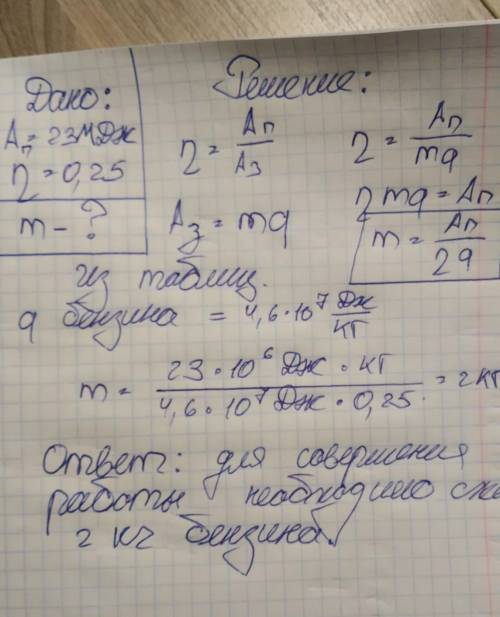 Дано:
Aп = 23 МДж
η = 0,25
m - ?
Решение:
η = Aп / Aз
η = Aп / mq
Aз = mq
ηmq = Aп
m = Aп / ηq
из таблиц.
q бензина = 4,6·10⁷ Дж/кг
m = 23·10⁶ Дж·кг / 4,6·10⁷ Дж·0,25 = 2 кг
Ответ: для совершения
работы необходимо
2 кг бензина.